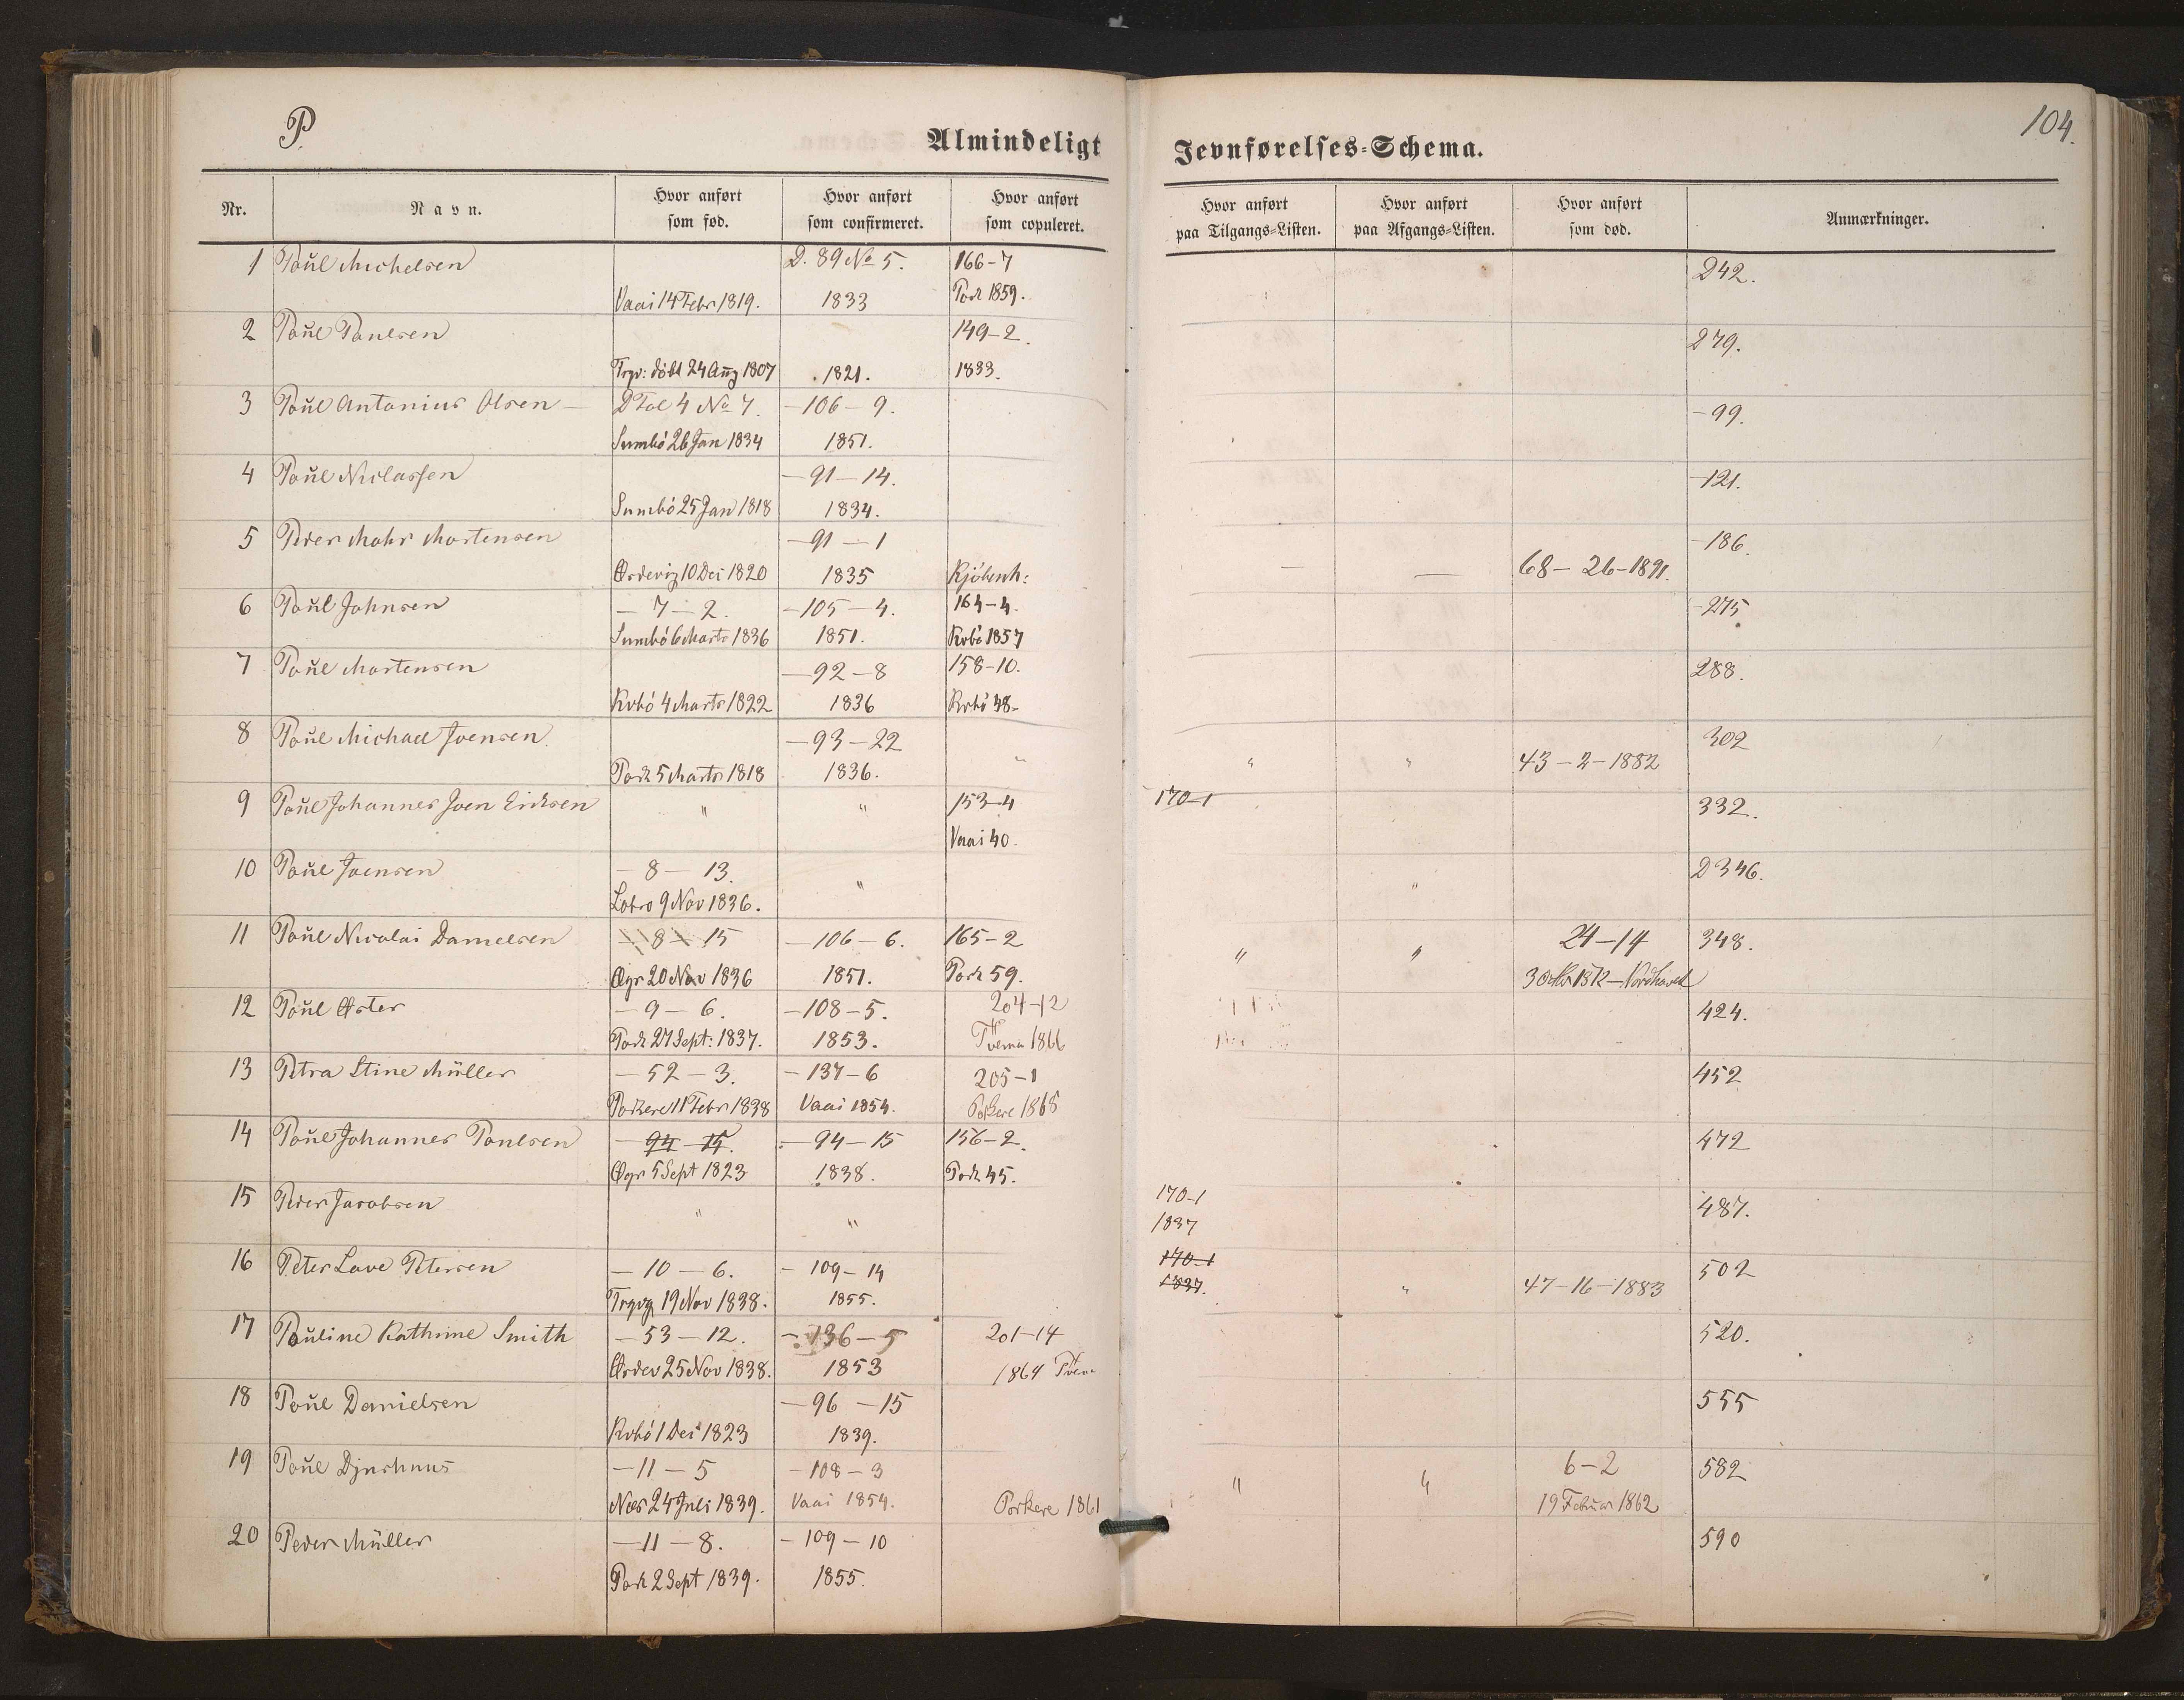 P.
104.
Almindeligt Jevnførelses-Schema.
Nr. Navn. Hvor anført som fød. Hvor anført som confirmeret. Hvor anført som copuleret. Hvor anført paa Tilgangs-Listen. Hvor anført paa Afgangs-Listen. Hvor anført som død. Anmærkninger.
1 Poŭl Michelsen D. 89 No 5. 166-7 242.
Vaai 14 Febr 1819. 1833 Pork 1859.
2 Poŭl Poulsen 149-2. 279.
Trgv: döbt 24 Aug 1807 1821. 1833.
3 Poŭl Antonius Olsen — D Fol 4 No 7. -106-9. -99.
Sumbö 26 Jan 1834 1851.
4 Poŭl Niclassen -91-14. -121.
Sumbö 25 Jan 1818 1834.
5 Peder Mohr Mortensen -91-1 -186.
Ørdevig 10 Dec 1820 1835 Kjöbenh: — — 68-26-1891.
6 Poŭl Johnsen -7-2. -105-4. 164-4. -275
Sumbö 6 Marts 1836 1851. Kvbö 1857
7 Poŭl Mortensen -92-8 158-10. 288.
Kvbö 4 Marts 1822 1836 Kvbö 48-
8 Poŭl Michael Joensen. -93-22 302
Pork 5 Marts 1818 1836. " " " 43-2-1882
9 Poŭl Johannes Joen Ericksen " " 153-4 170-1 332.
Vaai 40.
10 Poŭl Joensen -8-13. " " D 346.
Lobro 9 Nov 1836.
11 Poŭl Nicolai Danielsen -8-15 -106-6. 165-2 " " 24-14 348.
Øgr 20 Nov 1836 1851. Pork 59. 3 Octbr 1872 - Nordhavet
12 Poŭl Øster -9-6. -108-5. 204-12 424.
Pork 27 Sept: 1837. 1853. Tvera 1866
13 Petra Stine Müller -52-3. -137-6 205-1 452
Porkere 11 Febr 1838 Vaai 1854. Porkere 1868
14 Poŭl Johannes Poulsen -94-15. -94-15 156-2. 472
Øgr 5 Sept 1823 1838. Pork 45.
15 Peder Jacobsen " " 170-1 487.
1837
16 Peter Lave Petersen -10-6. -109-14 170-1 502
Trgvg 19 Nov 1838. 1855. 1837. " 47-16-1883
17 Pauline Kathrine Smith -53-12. -136-5 201-14 520.
Ørdev 25 Nov 1838. 1853 1864 Tvera
18 Poŭl Danielsen -96-15 555
Kvbö 1 Dec 1823 1839.
19 Poŭl Djurhuus -11-5 -108-3 " " 6-2 582
Næs 24 Juli 1839. Vaai 1854. Porkere 1861 19 Februar 1862
20 Peder Müller -11-8. -109-10 590
Pork 2 Sept 1839. 1855.